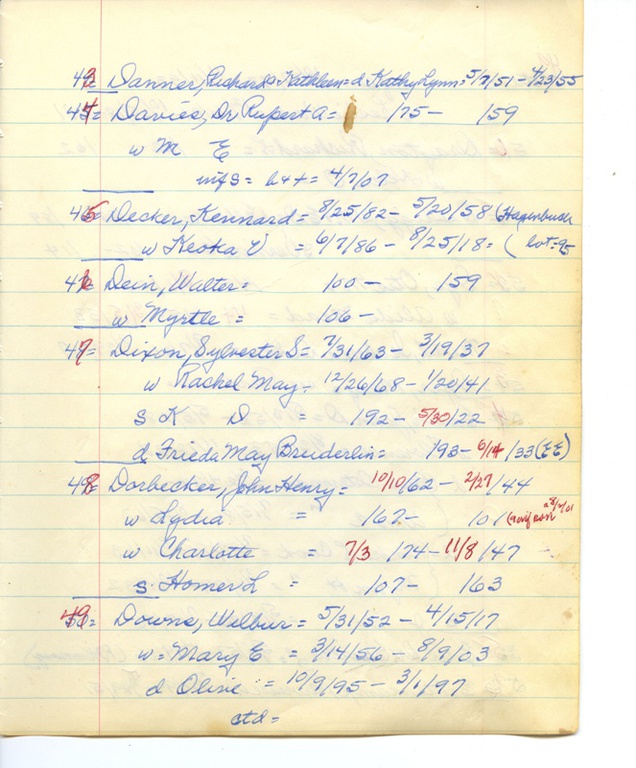 43= Danner, Richard & Kathleen = d Kathy Lynn = 5/7/51 - 4/23/55
44= Davies, Dr Rupert A = 1/75 - 159
w M E
inf s = b++ = 4/7/07
45= Decker, Kennard = 8/25/82 - 5/20/58 (Hagenbuch
w Keoka V = 6/7/86 - 8/25/18 = ( lot = 95
46= Dein, Walter = 100 - 159
w Myrtle = 106 -
47= Dixon, Sylvester S = 7/31/63 - 3/19/37
w Rachel May - 12/26/68 - 1/20/41
s K D = 192 - 5/30/22
d Frieda May Breiderlin = 193 - 6/14/33 (EE)
48= Dorbecker, John Henry = 10/10/62 - 2/27/44
w Lydia = 167 - 101
w Charlotte = 7/3 174 - 11/8/47
s. Homer L = 107 - 163
49= Downs, Wilbur = 5/31/52 - 4/15/17
w = Mary E = 3/14/56 - 8/9/03
d Olive = 10/9/95 - 3/1/97
ctd =